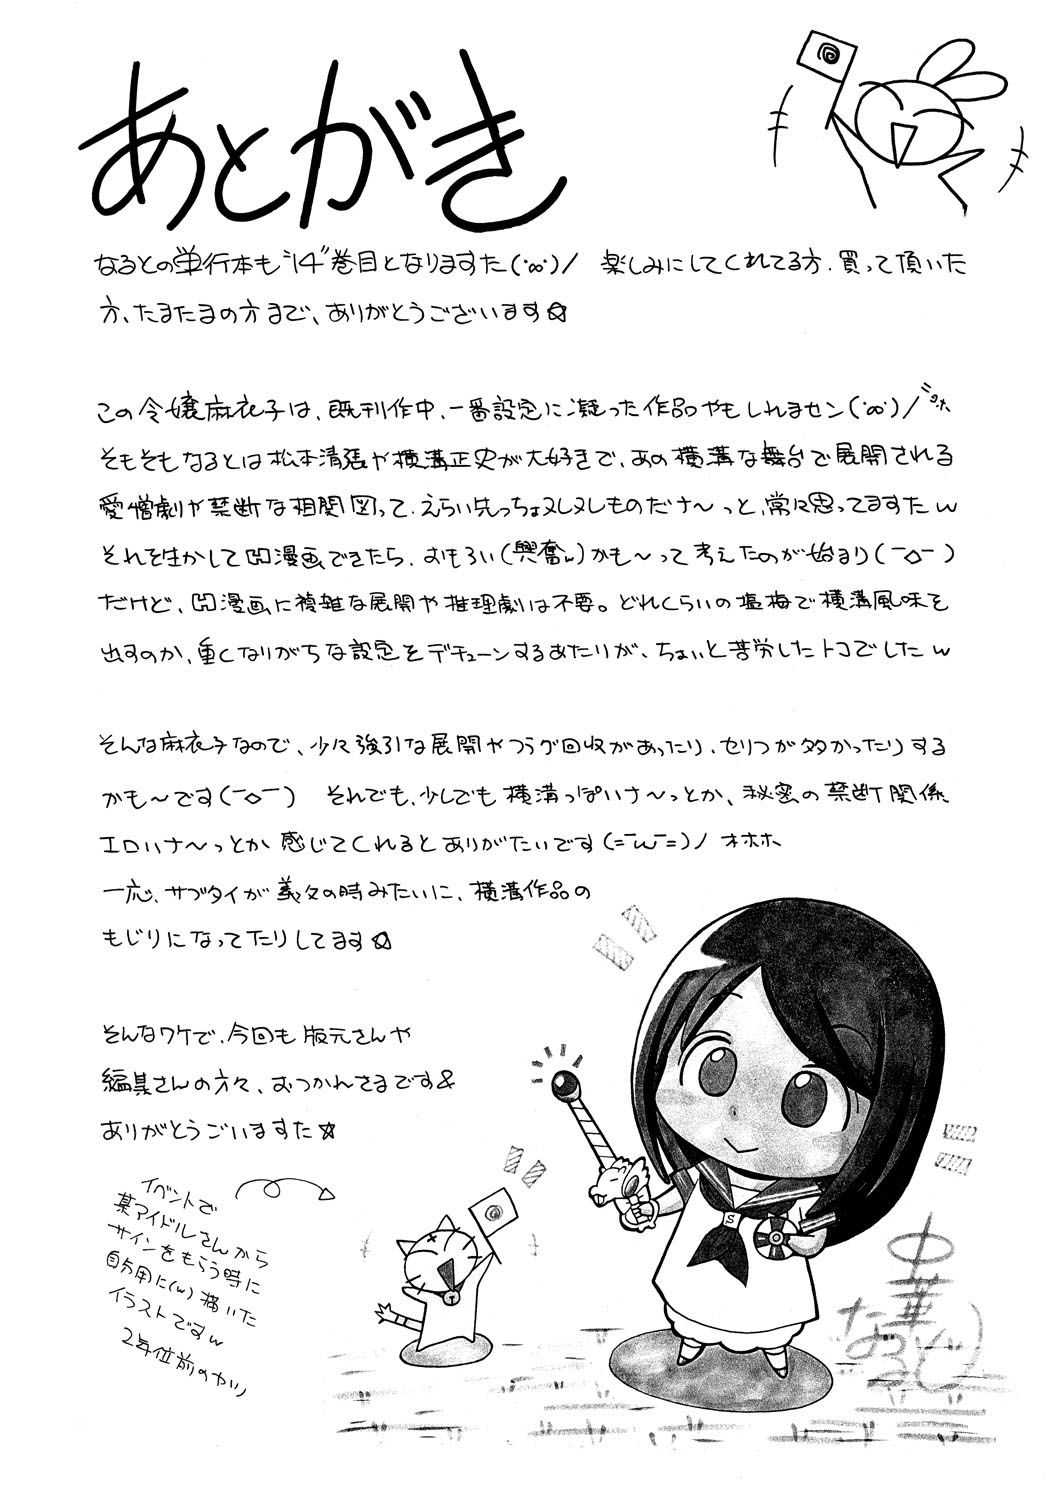 あとがき
なるとの単行本も"14"巻目となりますた(・∞・)ノ 楽しみにしてくれてる方、買って頂いた
方、たまたまの方まで、ありがとうございます☆
この令嬢麻衣子は、既刊作中、一番設定に凝った作品やもしれませン(・∞・)ノ
そもそもなるとは松本清張や横溝正史が大好きで、あの横溝な舞台で展開される
愛憎劇や禁断な相関図って、えらい先っちょヌレヌレものだナ〜っと、常々思ってますたw
それを生かして凹漫画できたら、おもろい(興奮w)かも〜って考えたのが始まり(￣◇￣)
だけど、凹漫画に複雑な展開や推理劇は不要。どれくらいの塩梅で横溝風味を
出すのか、重くなりがちな設定をデチューンするあたりが、ちょいと苦労したトコでしたw
そんな麻衣子なので、少々強引な展開やフラグ回収があったり、セリフが多かったりする
かも〜です(￣◇￣) それでも、少しでも横溝っぽいナ〜っとか、秘密の禁断関係
エロいナ〜っとか感じてくれるとありがたいです(=￣ω￣=)ノ オホホ
一応、サブタイが義父の時みたいに、横溝作品の
もじりになってたりしてます☆
そんなワケで、今回も版元さんや
編集さんの方々、おつかれさまです&
ありがとうございますた☆
イベントで
某アイドルさんから
サインをもらう時に
自分用に(w)描いた
イラストですw
2年位前のヤツ
S